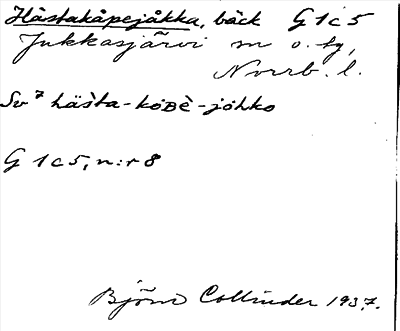 Hástakåpejåkka, bäck G 1 c 5
Jukkasjärvi sn o. tg,
Norrb. l.
Sv⁷ hàsta-koʙè-johko
G 1 c 5, n:r 8
Björn Collinder 1937.